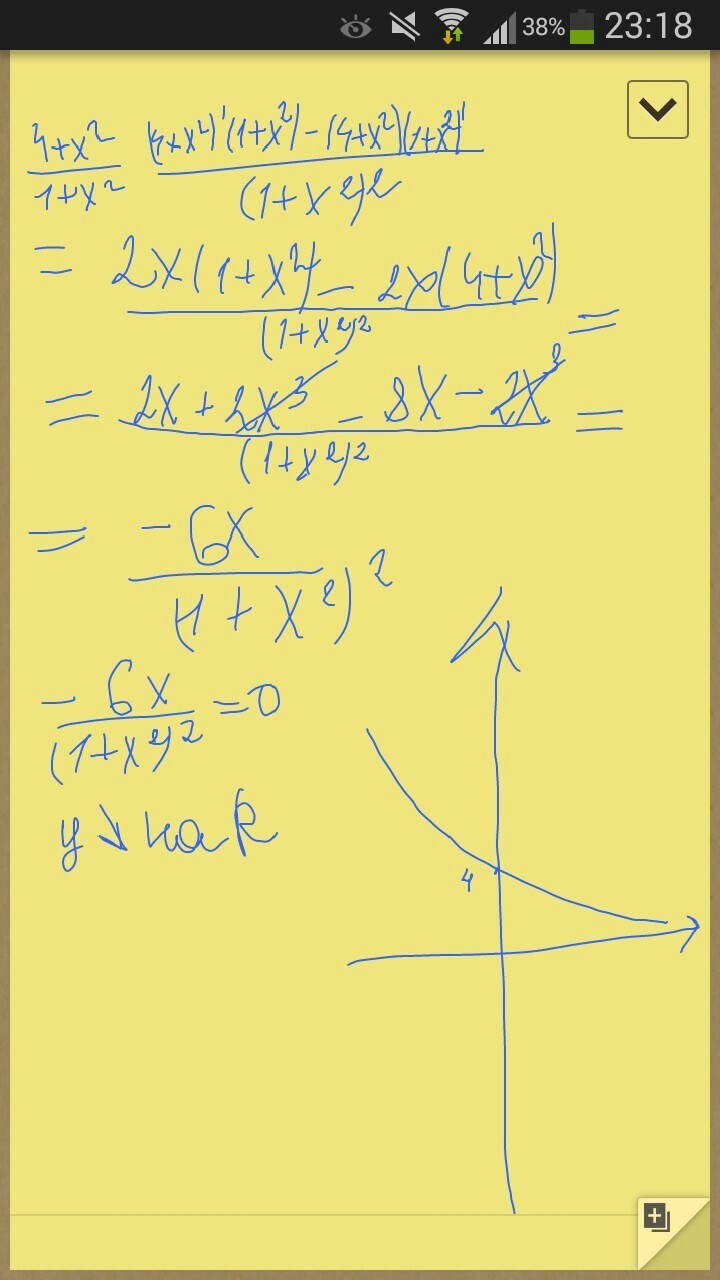 38% 23:18
4+x² / 1+x² (4+x²)'(1+x²) - (4+x²)(1+x²)' / (1+x²)²
= 2x(1+x²) - 2x(4+x²) / (1+x²)² =
= 2x + 2x³ - 8x - 2x³ / (1+x²)² =
= -6x / (1+x²)²
-6x / (1+x²)² = 0
y ↘ на R
4